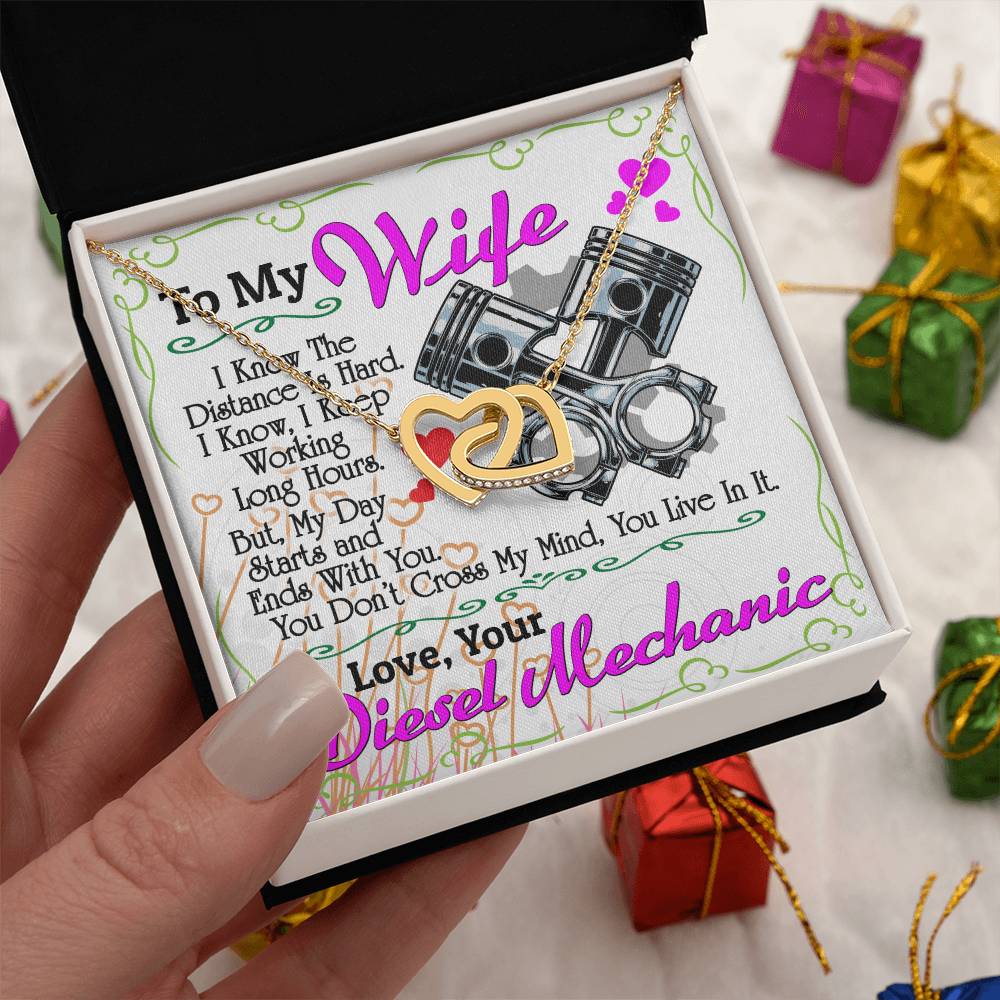 To My Wife
I Know The
Distance Is Hard.
I Know, I Keep
Working
Long Hours.
But, My Day
Starts and
Ends With You.
You Don't Cross My Mind, You Live In It.
Love, Your
Diesel Mechanic